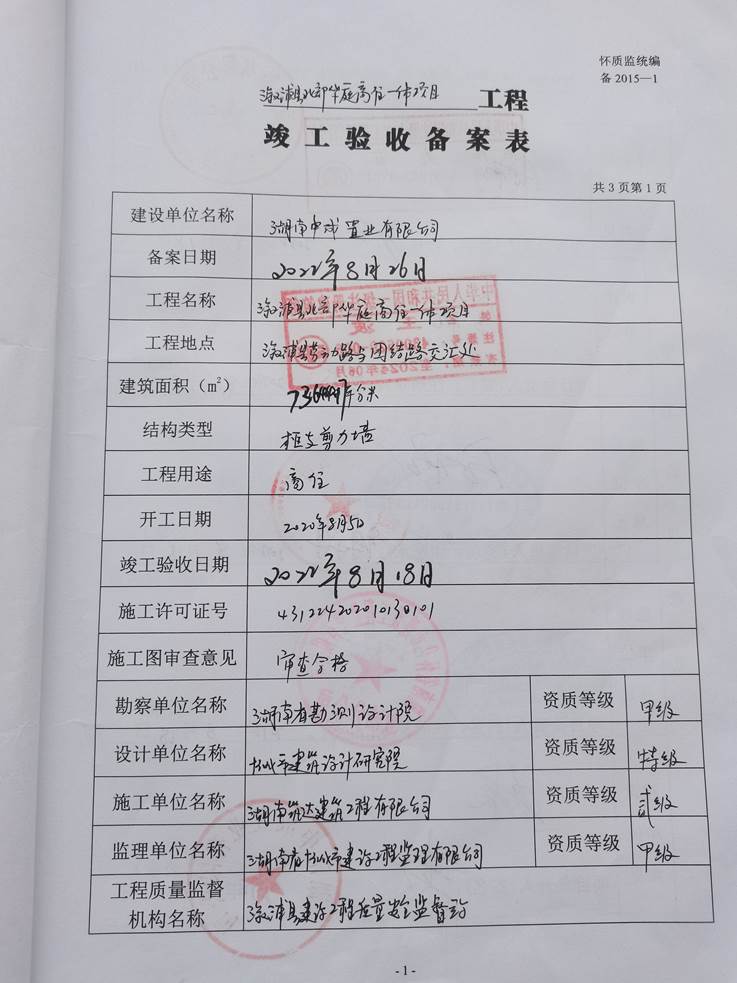 怀质监统编
备 2015—1
溆浦县北部华庭商住一体项目 工程
竣工验收备案表
共 3 页第 1 页
建设单位名称 湖南中成置业有限公司
备案日期 2022年8月26日
工程名称 溆浦县北部华庭商住一体项目
工程地点 溆浦县劳动路与团结路交汇处
建筑面积（m²） 平方米
结构类型 框支剪力墙
工程用途 商住
开工日期 2020年8月5日
竣工验收日期 2022年8月18日
施工许可证号 431224202010130101
施工图审查意见 审查合格
勘察单位名称 湖南省勘测设计院 资质等级 甲级
设计单位名称 市建筑设计研究院 资质等级 特级
施工单位名称 湖南筑达建筑工程有限公司 资质等级 贰级
监理单位名称 湖南省市建设工程监理有限公司 资质等级 甲级
工程质量监督
机构名称 溆浦县建设工程质量安全监督站
- 1 -